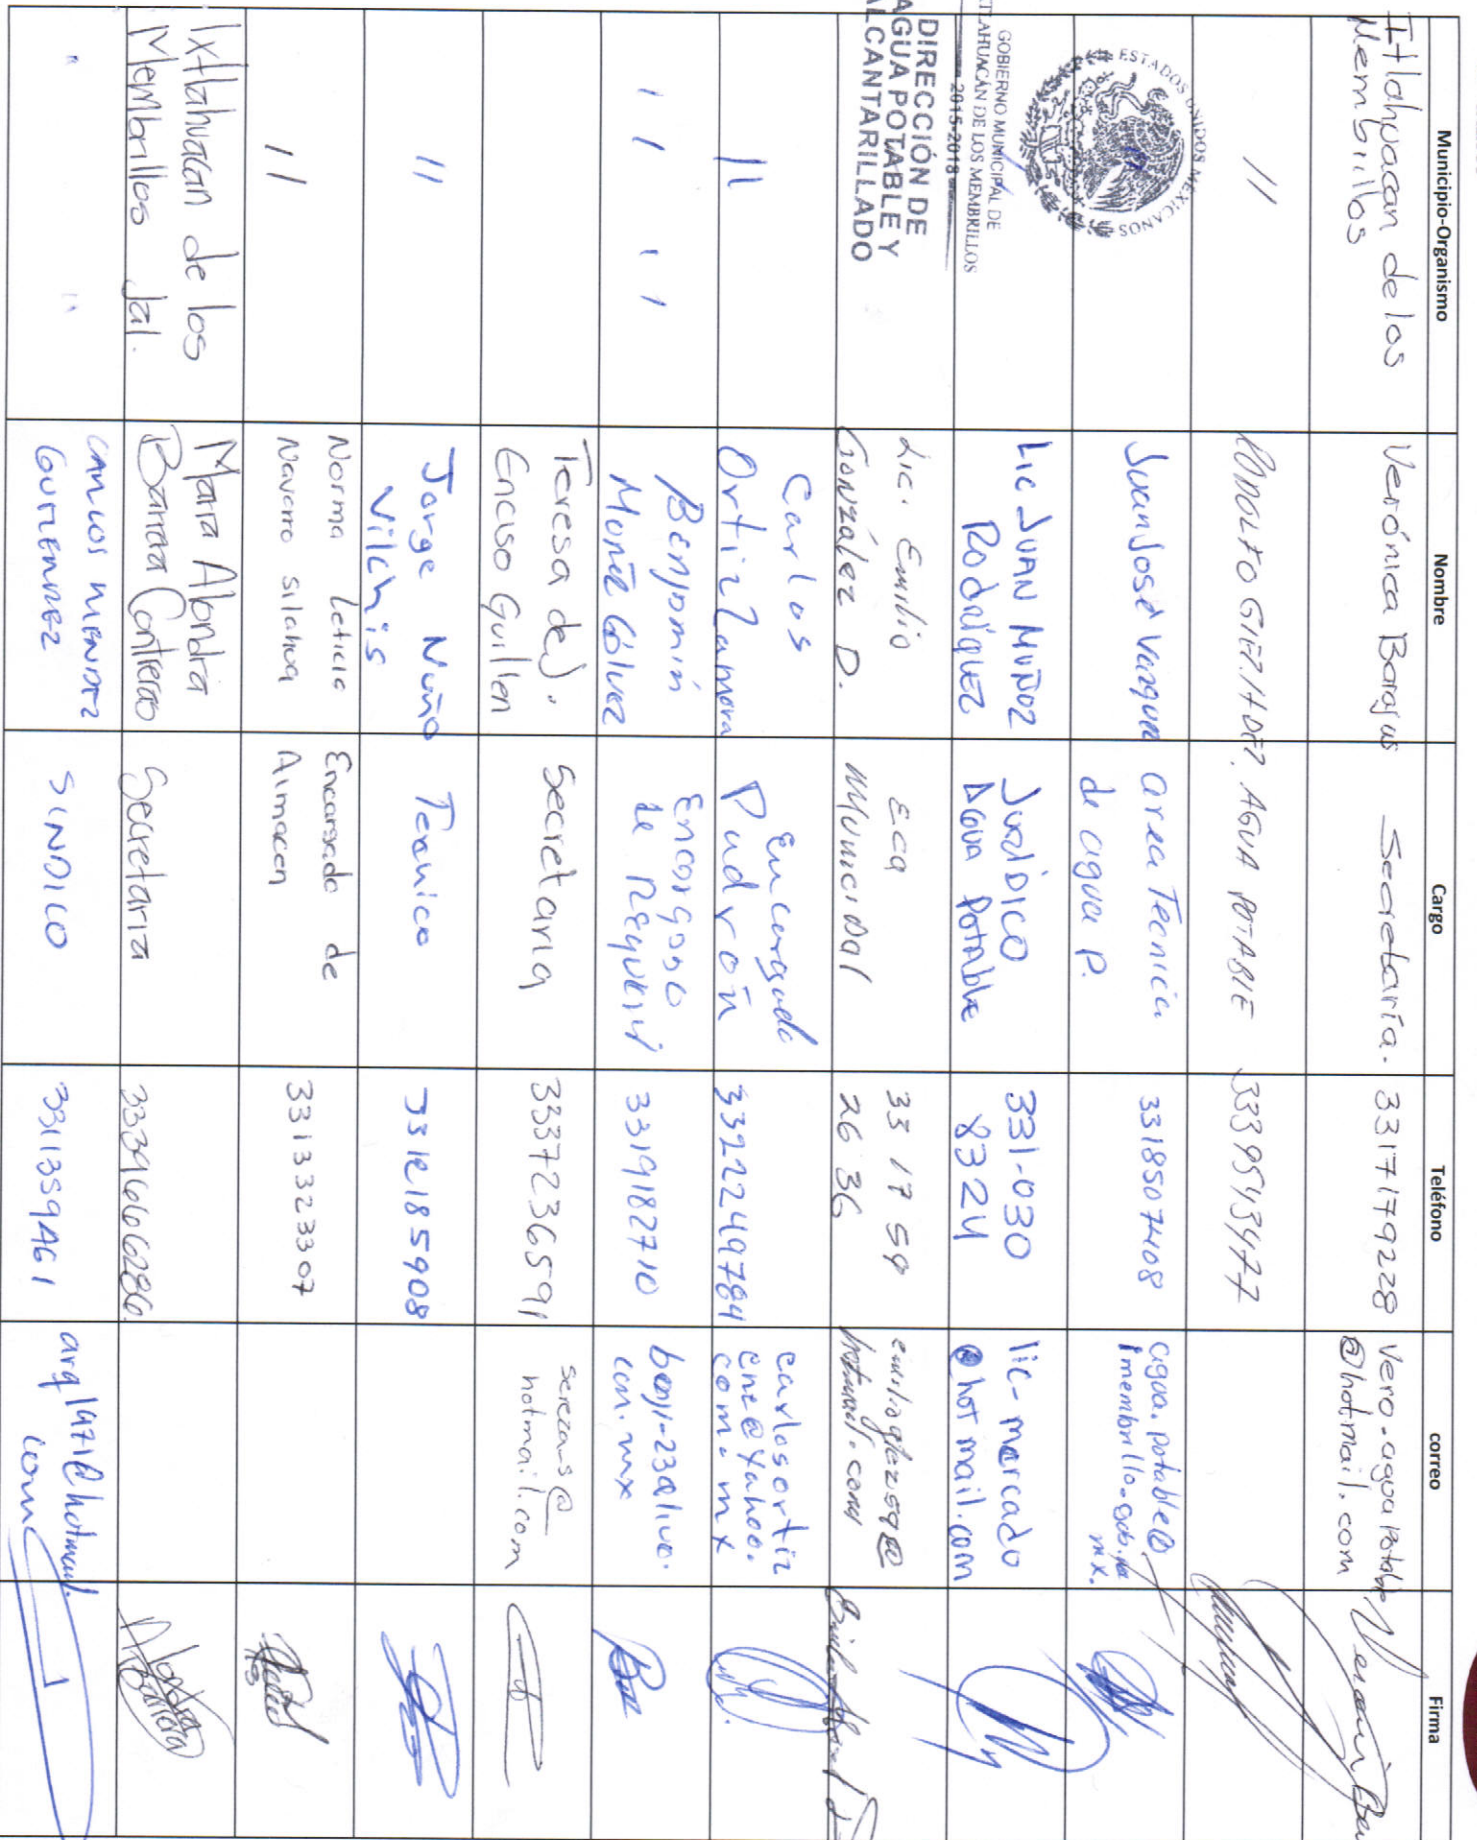 Municipio-Organismo Nombre Cargo Teléfono correo Firma
Itlahuacan de los
Membrillos
Verónica Barajas
Secretaría.
3317179228
Vero-agua Potable
@hotmail.com
11
RODOLFO
AGUA POTABLE
3339543477
Juan José Vazquez
area Tecnica
de agua P.
3318507408
agua.potable@
imembrillo-gob.
mx.
ESTADOS UNIDOS MEXICANOS
GOBIERNO MUNICIPAL DE
TLAHUACÁN DE LOS MEMBRILLOS
2015-2018
DIRECCIÓN DE
AGUA POTABLE Y
ALCANTARILLADO
Lic JUAN MUÑOZ
Rodríguez
JuríDICO
Agua Potable
331-030
8324
lic-mercado
@hotmail.com
Lic. Emilio
González D.
ECA
Municipal
33 17 59
26 36
emiliaglez59@
hotmail.com
11
Carlos
Ortiz Zamora
Encargado
Padrón
3322249784
carlosortiz
cnc@yahoo.
com.mx
11 11
Benjamín
Muñoz Gálvez
Encargado
de
3319182710
benji-23@live.
com.mx
Teresa de J.
Enciso Guillen
Secretaria
3337236591
serezas@
hotmail.com
11
Jorge Nuño
Vilchis
Tecnico
3312185908
11
Norma Leticia
Navarro silahua
Encargado de
Almacen
3313323307
Ixtlahuacan de los
Membrillos Jal.
Maria Alondra
Barrera Contreras
Secretaria
3339666286
Alondra
Barrera
" "
CARLOS MENDEZ
GUTIERREZ
SINDICO
3311359461
arq1471@hotmail.
com